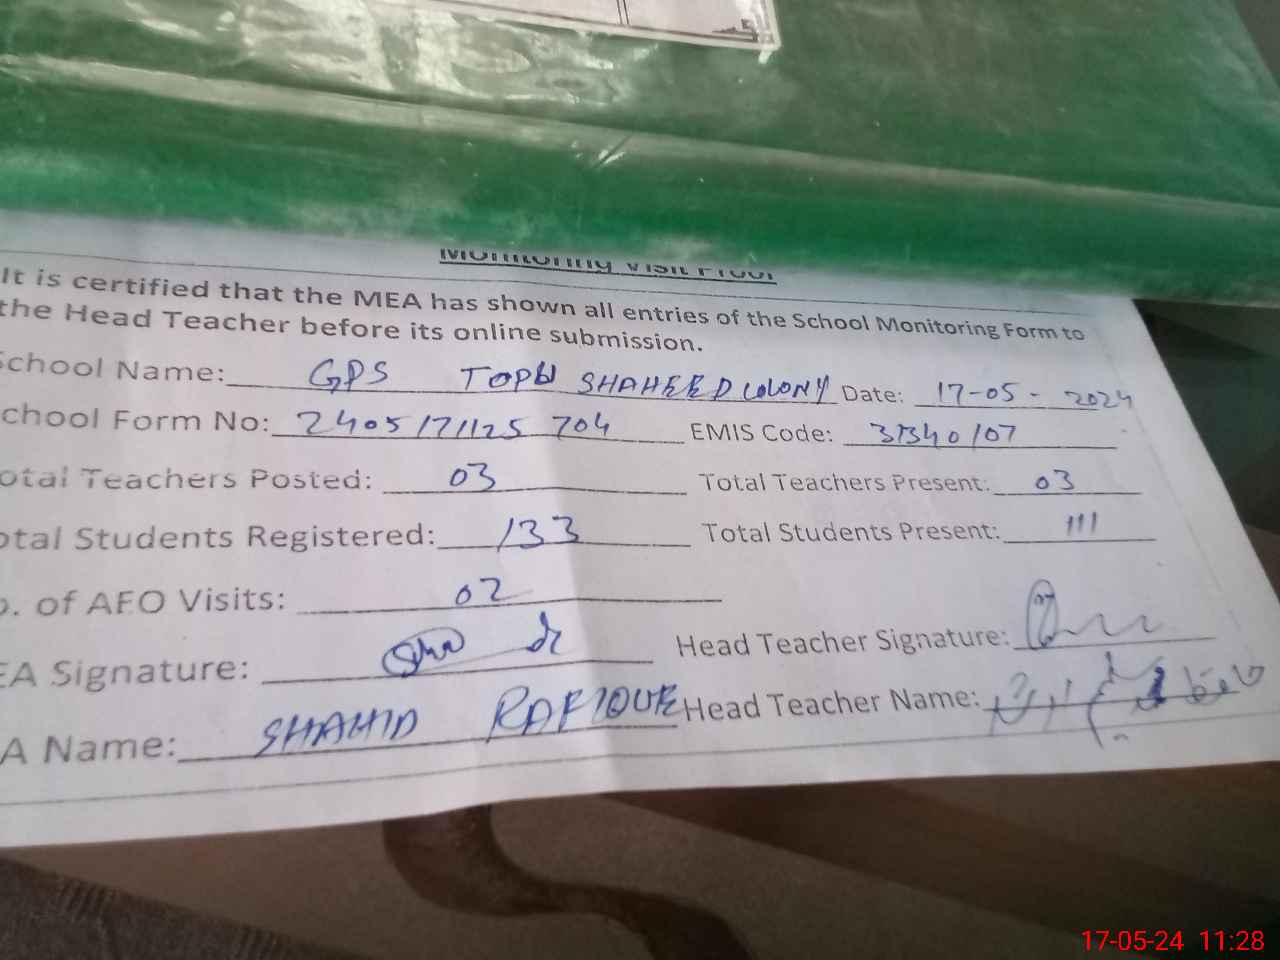 Monitoring Visit Proof
It is certified that the MEA has shown all entries of the School Monitoring Form to
the Head Teacher before its online submission.
School Name: GPS TOPU SHAHEED COLONY Date: 17-05-2024
chool Form No: 2405171125 704 EMIS Code: 31340107
otal Teachers Posted: 03 Total Teachers Present: 03
otal Students Registered: 133 Total Students Present: 111
o. of AEO Visits: 02
EA Signature: Head Teacher Signature:
A Name: SHAHID RAFIQUE Head Teacher Name:
17-05-24 11:28